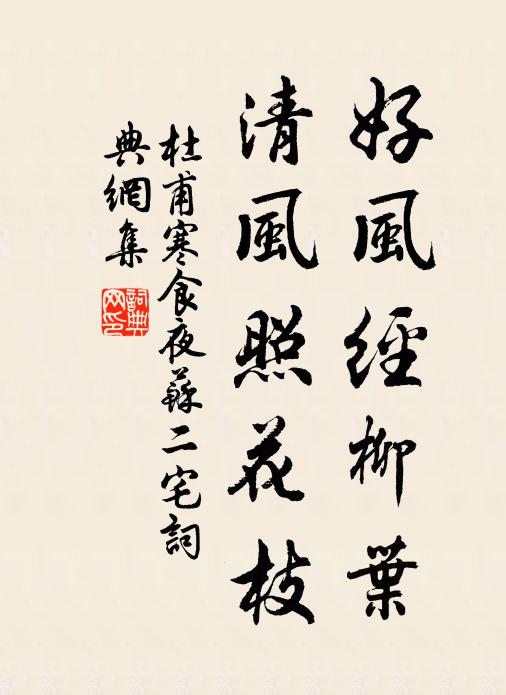 好風經柳葉
清風照花枝
杜甫寒食夜蘇二宅詞
典網集
詞典網印